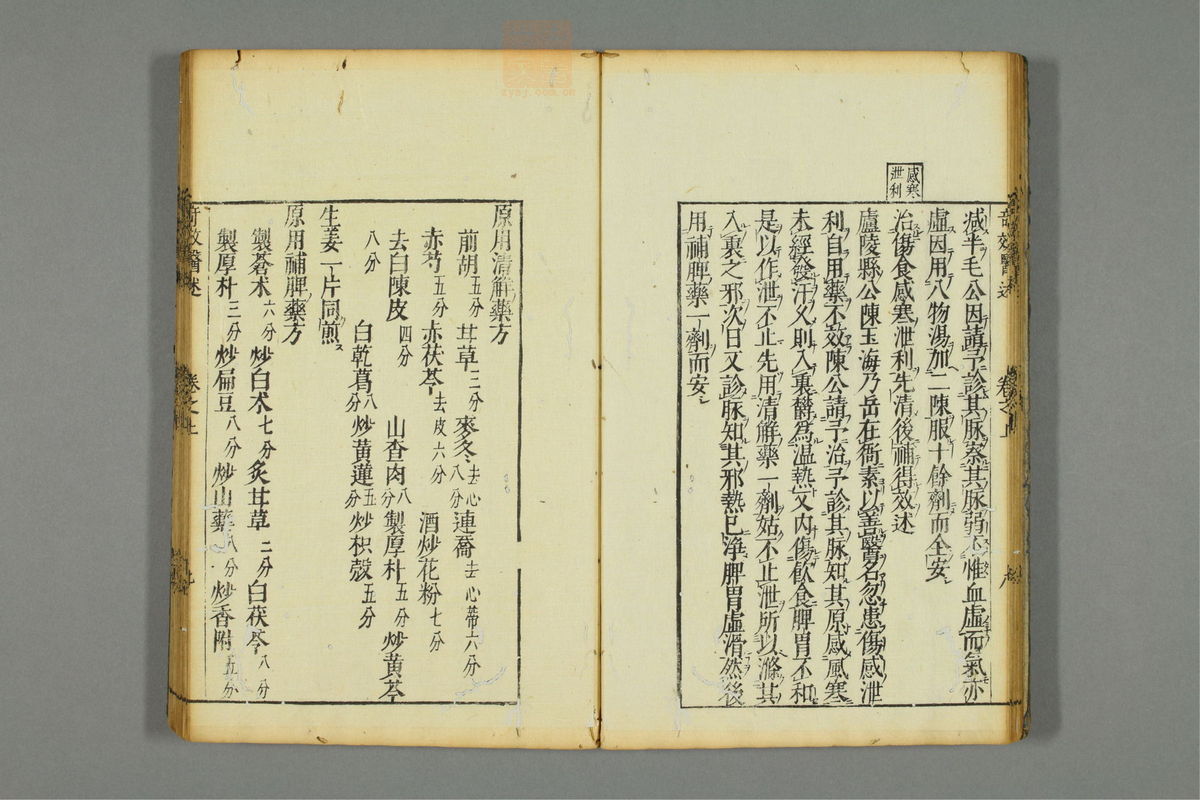 感寒
泄利
減半毛公因請予診其脉察其脉弱不惟血虛而氣亦
虛因用八物湯加二陳服十餘劑而全安
治傷食感寒泄利先清後補得效述
盧陵縣公陳玉海乃岳在衙素以善醫名忽患傷感泄
利自用藥不效陳公請予治予診其脉知其原感風寒
未經發汗久則入裏欝為温熱又内傷飲食脾胃不和
是以作泄不止先用清解藥一劑姑不止泄所以滌其
入裏之邪次日又診脉知其邪熱已淨脾胃虛滑然後
用補脾藥一劑而安
奇效醫述
卷之上
原用清解藥方
前胡五分 甘草三分 麥冬去心八分 連喬去心蒂六分
赤芍五分 赤茯苓去皮六分 酒炒花粉七分
去白陳皮四分 山查肉八分 製厚朴五分 炒黄芩
八分 白乾葛八分 炒黄蓮五分 炒枳殼五分
生姜一片同煎
原用補脾藥方
製蒼术六分 炒白术七分 炙甘草二分 白茯苓八分
製厚朴三分 炒扁豆八分 炒山藥八分 炒香附五分
奇效醫述
卷之上
九
zysj.com.cn